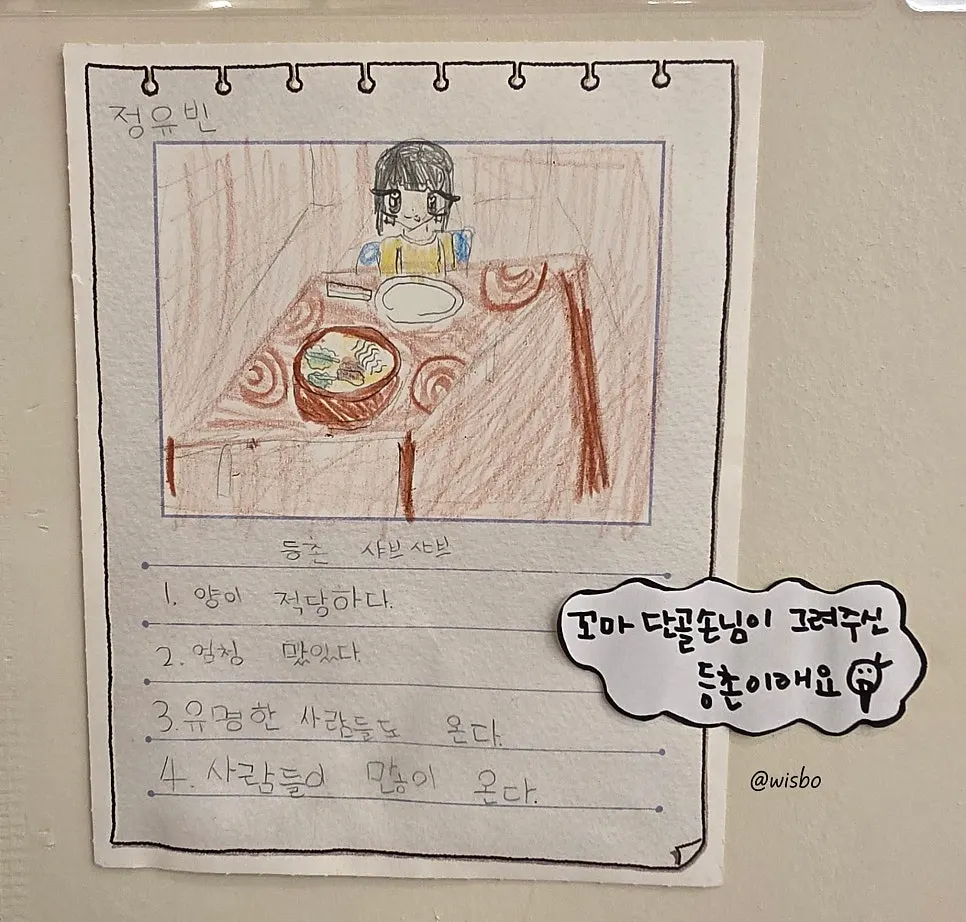 정유빈
등촌 샤브샤브
1. 양이 적당하다.
2. 엄청 맜있다.
3. 유명한 사람들도 온다.
4. 사람들이 많이 온다.
꼬마 단골손님이 그려주신
등촌이래요
@wisbo